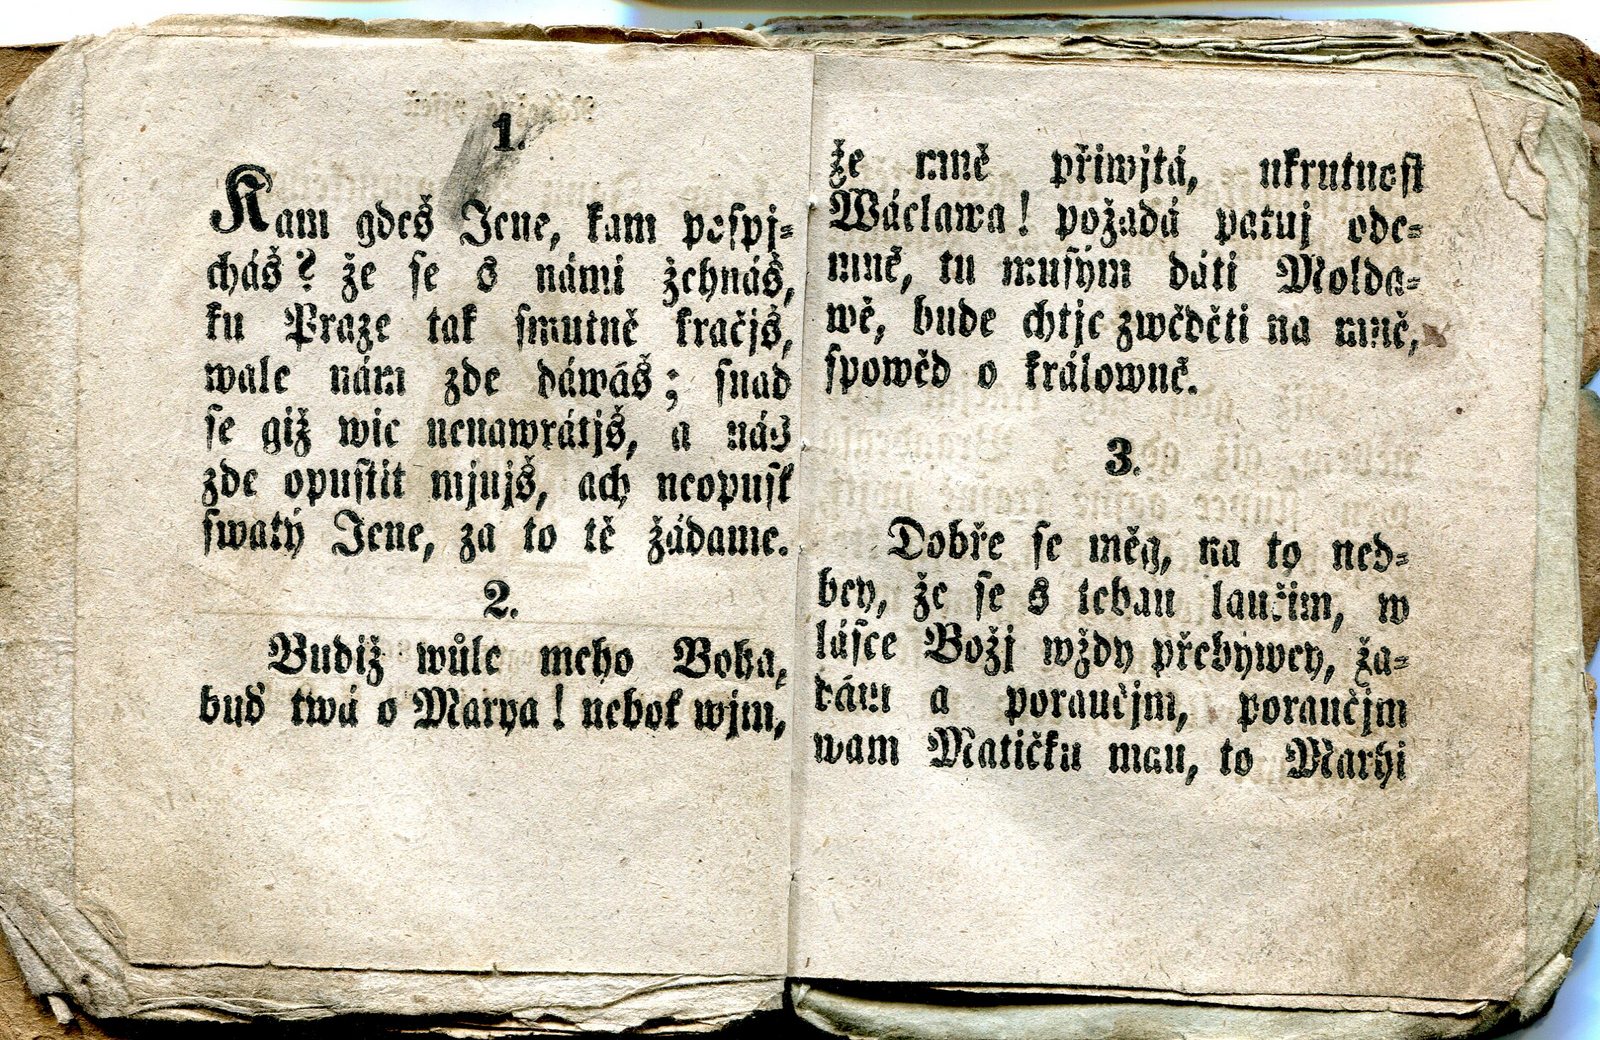 1.
Kam gdeš Jene, kam pospj-
cháš? že se s námi žehnáš,
ku Praze tak smutně kračjš,
wale nám zde dáwáš; snad
se giž wic nenawrátjš, a nás
zde opustit mjnjš, ach neopusť
swatý Jene, za to tě žádame.
2.
Budiž wůle meho Boha,
buď twá o Marya! neboť wjm,
že mně přiwjtá, ukrutnost
Wáclawa! požadá patuj ode-
mně, tu musým dáti Molda-
wě, bude chtjc zwěděti na mně,
spowěd o králowně.
3.
Dobře se měg, na to ned-
bey, že se s tebau laučim, w
lásce Božj wždy přebýwey, ža-
dám a poraučjm, poraučjm
wam Matičku mau, to Maryi